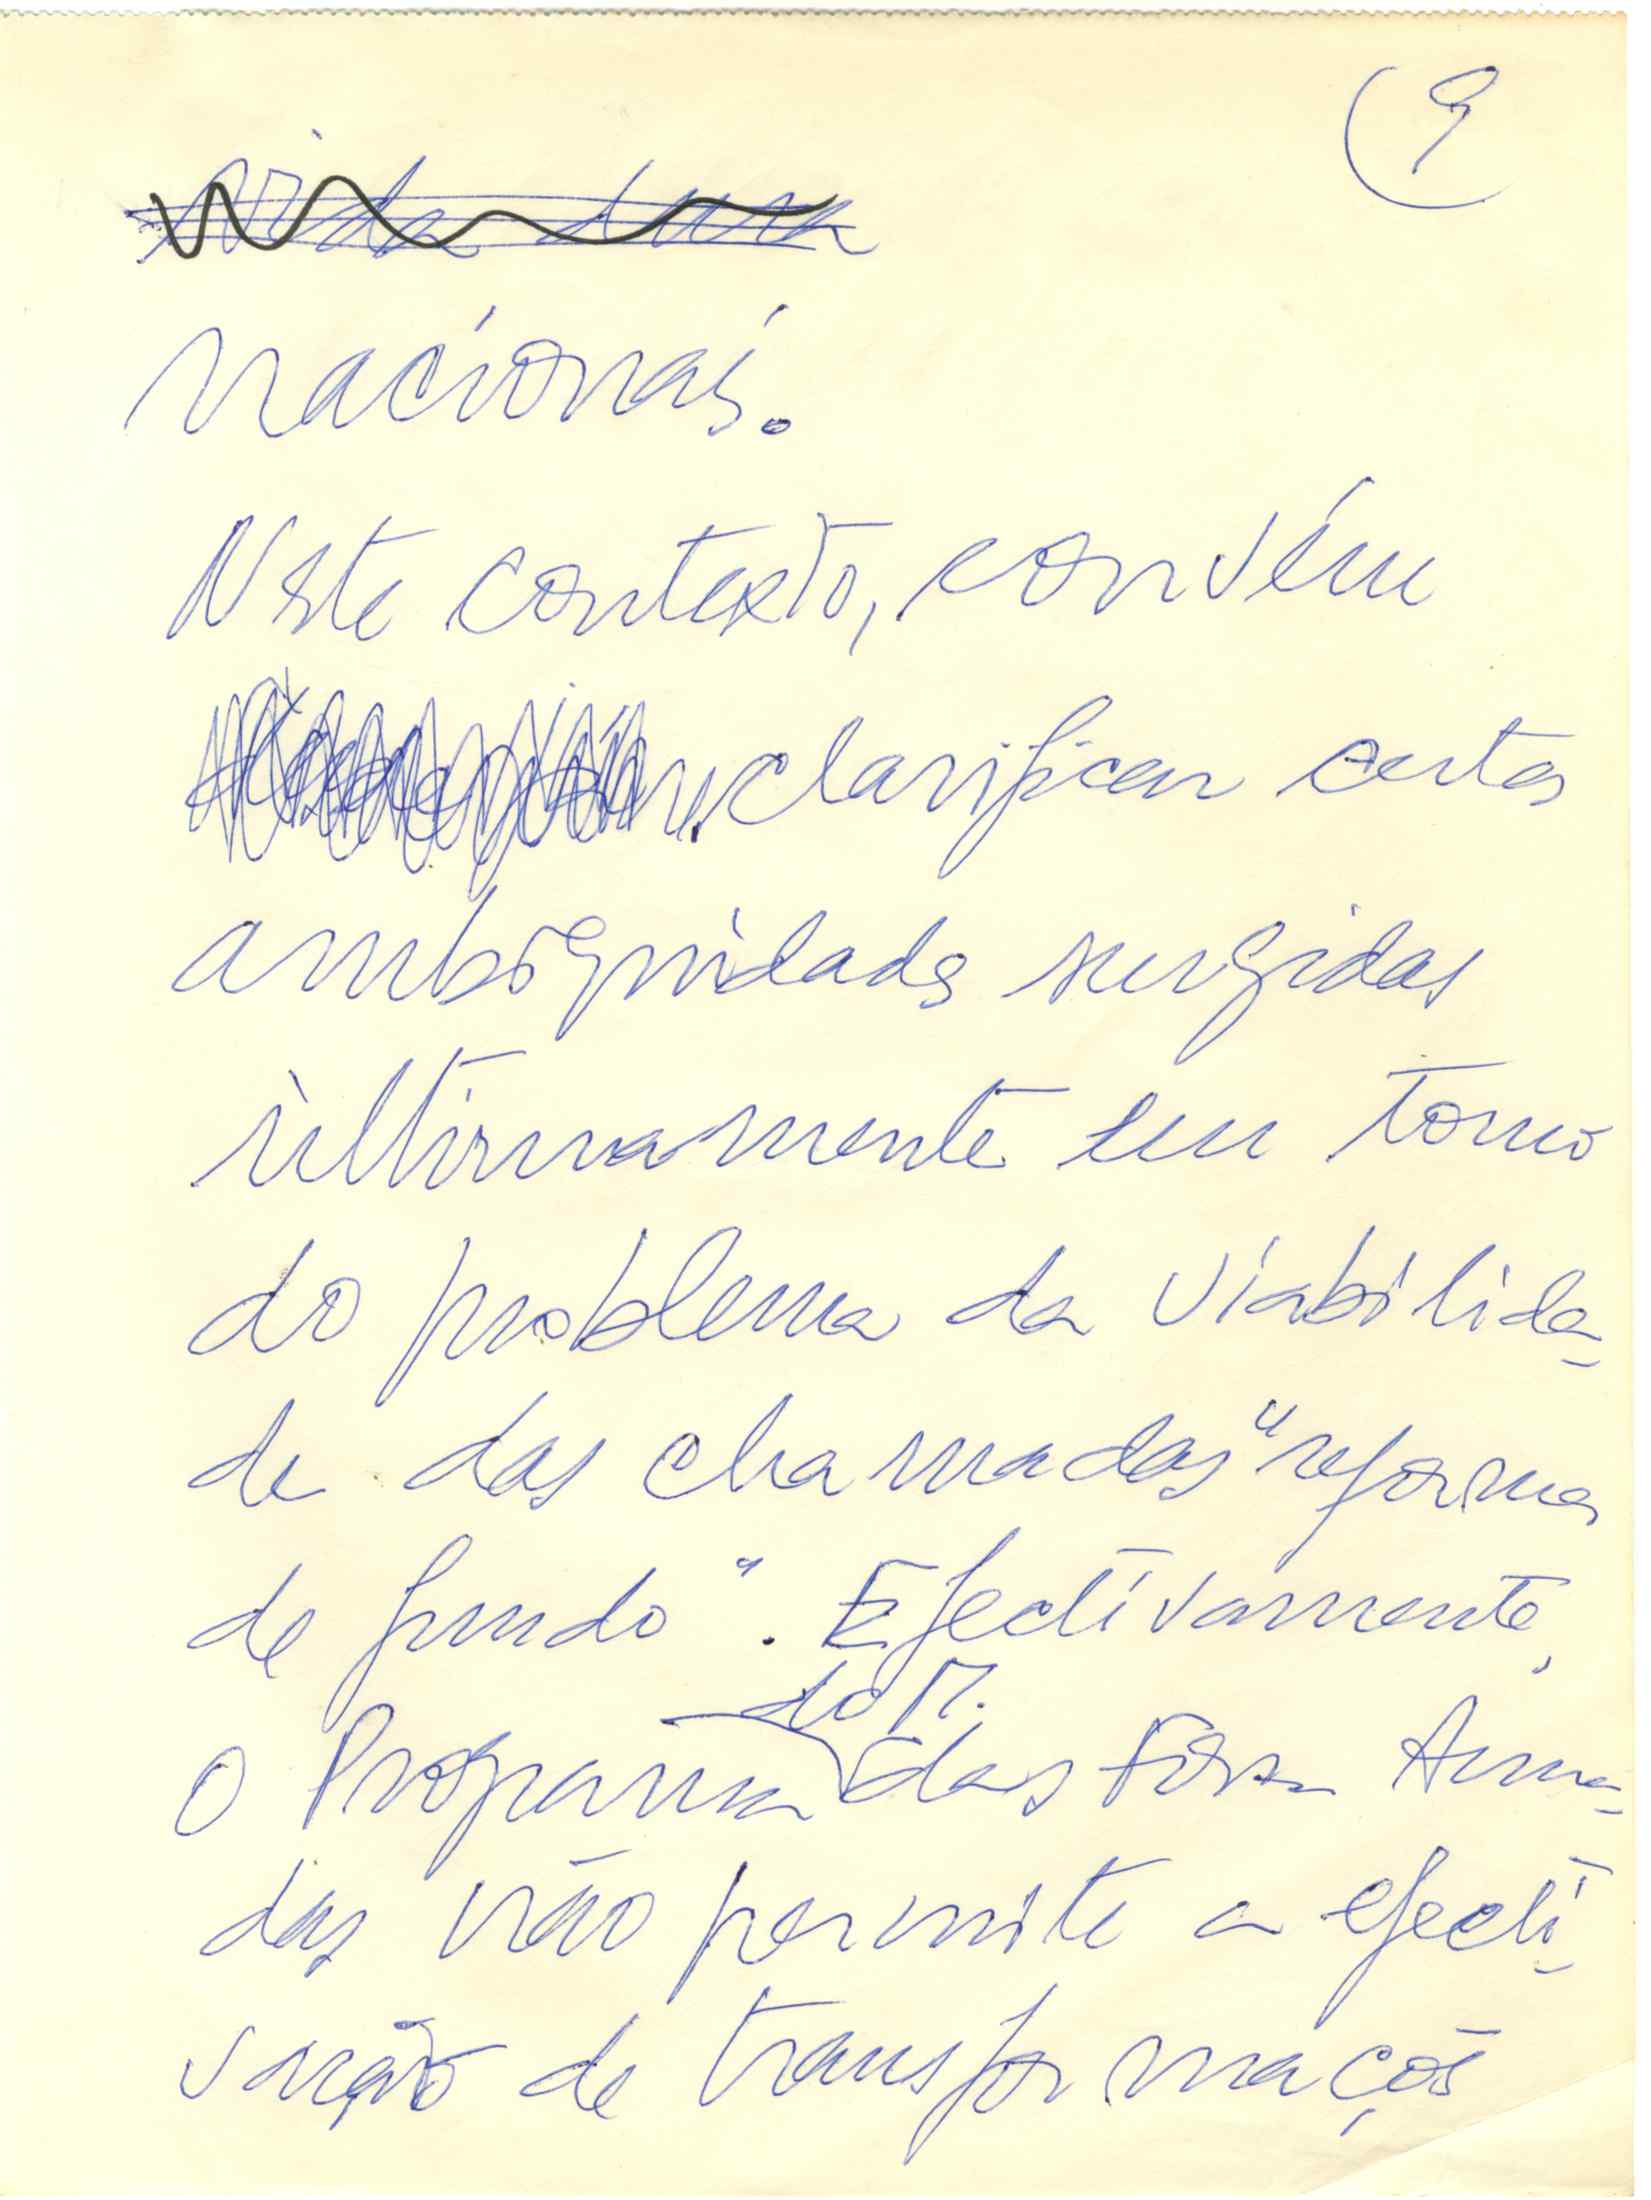 9
nacionais.
Neste contexto, convém
clarificar certas
ambiguidades surgidas
ùltimamente em torno
do problema da viabilida-
de das chamadas "reformas
de fundo". Efectivamente,
do M.
o Programa das Forças Arma-
das não permite a efecti-
vação de transformações